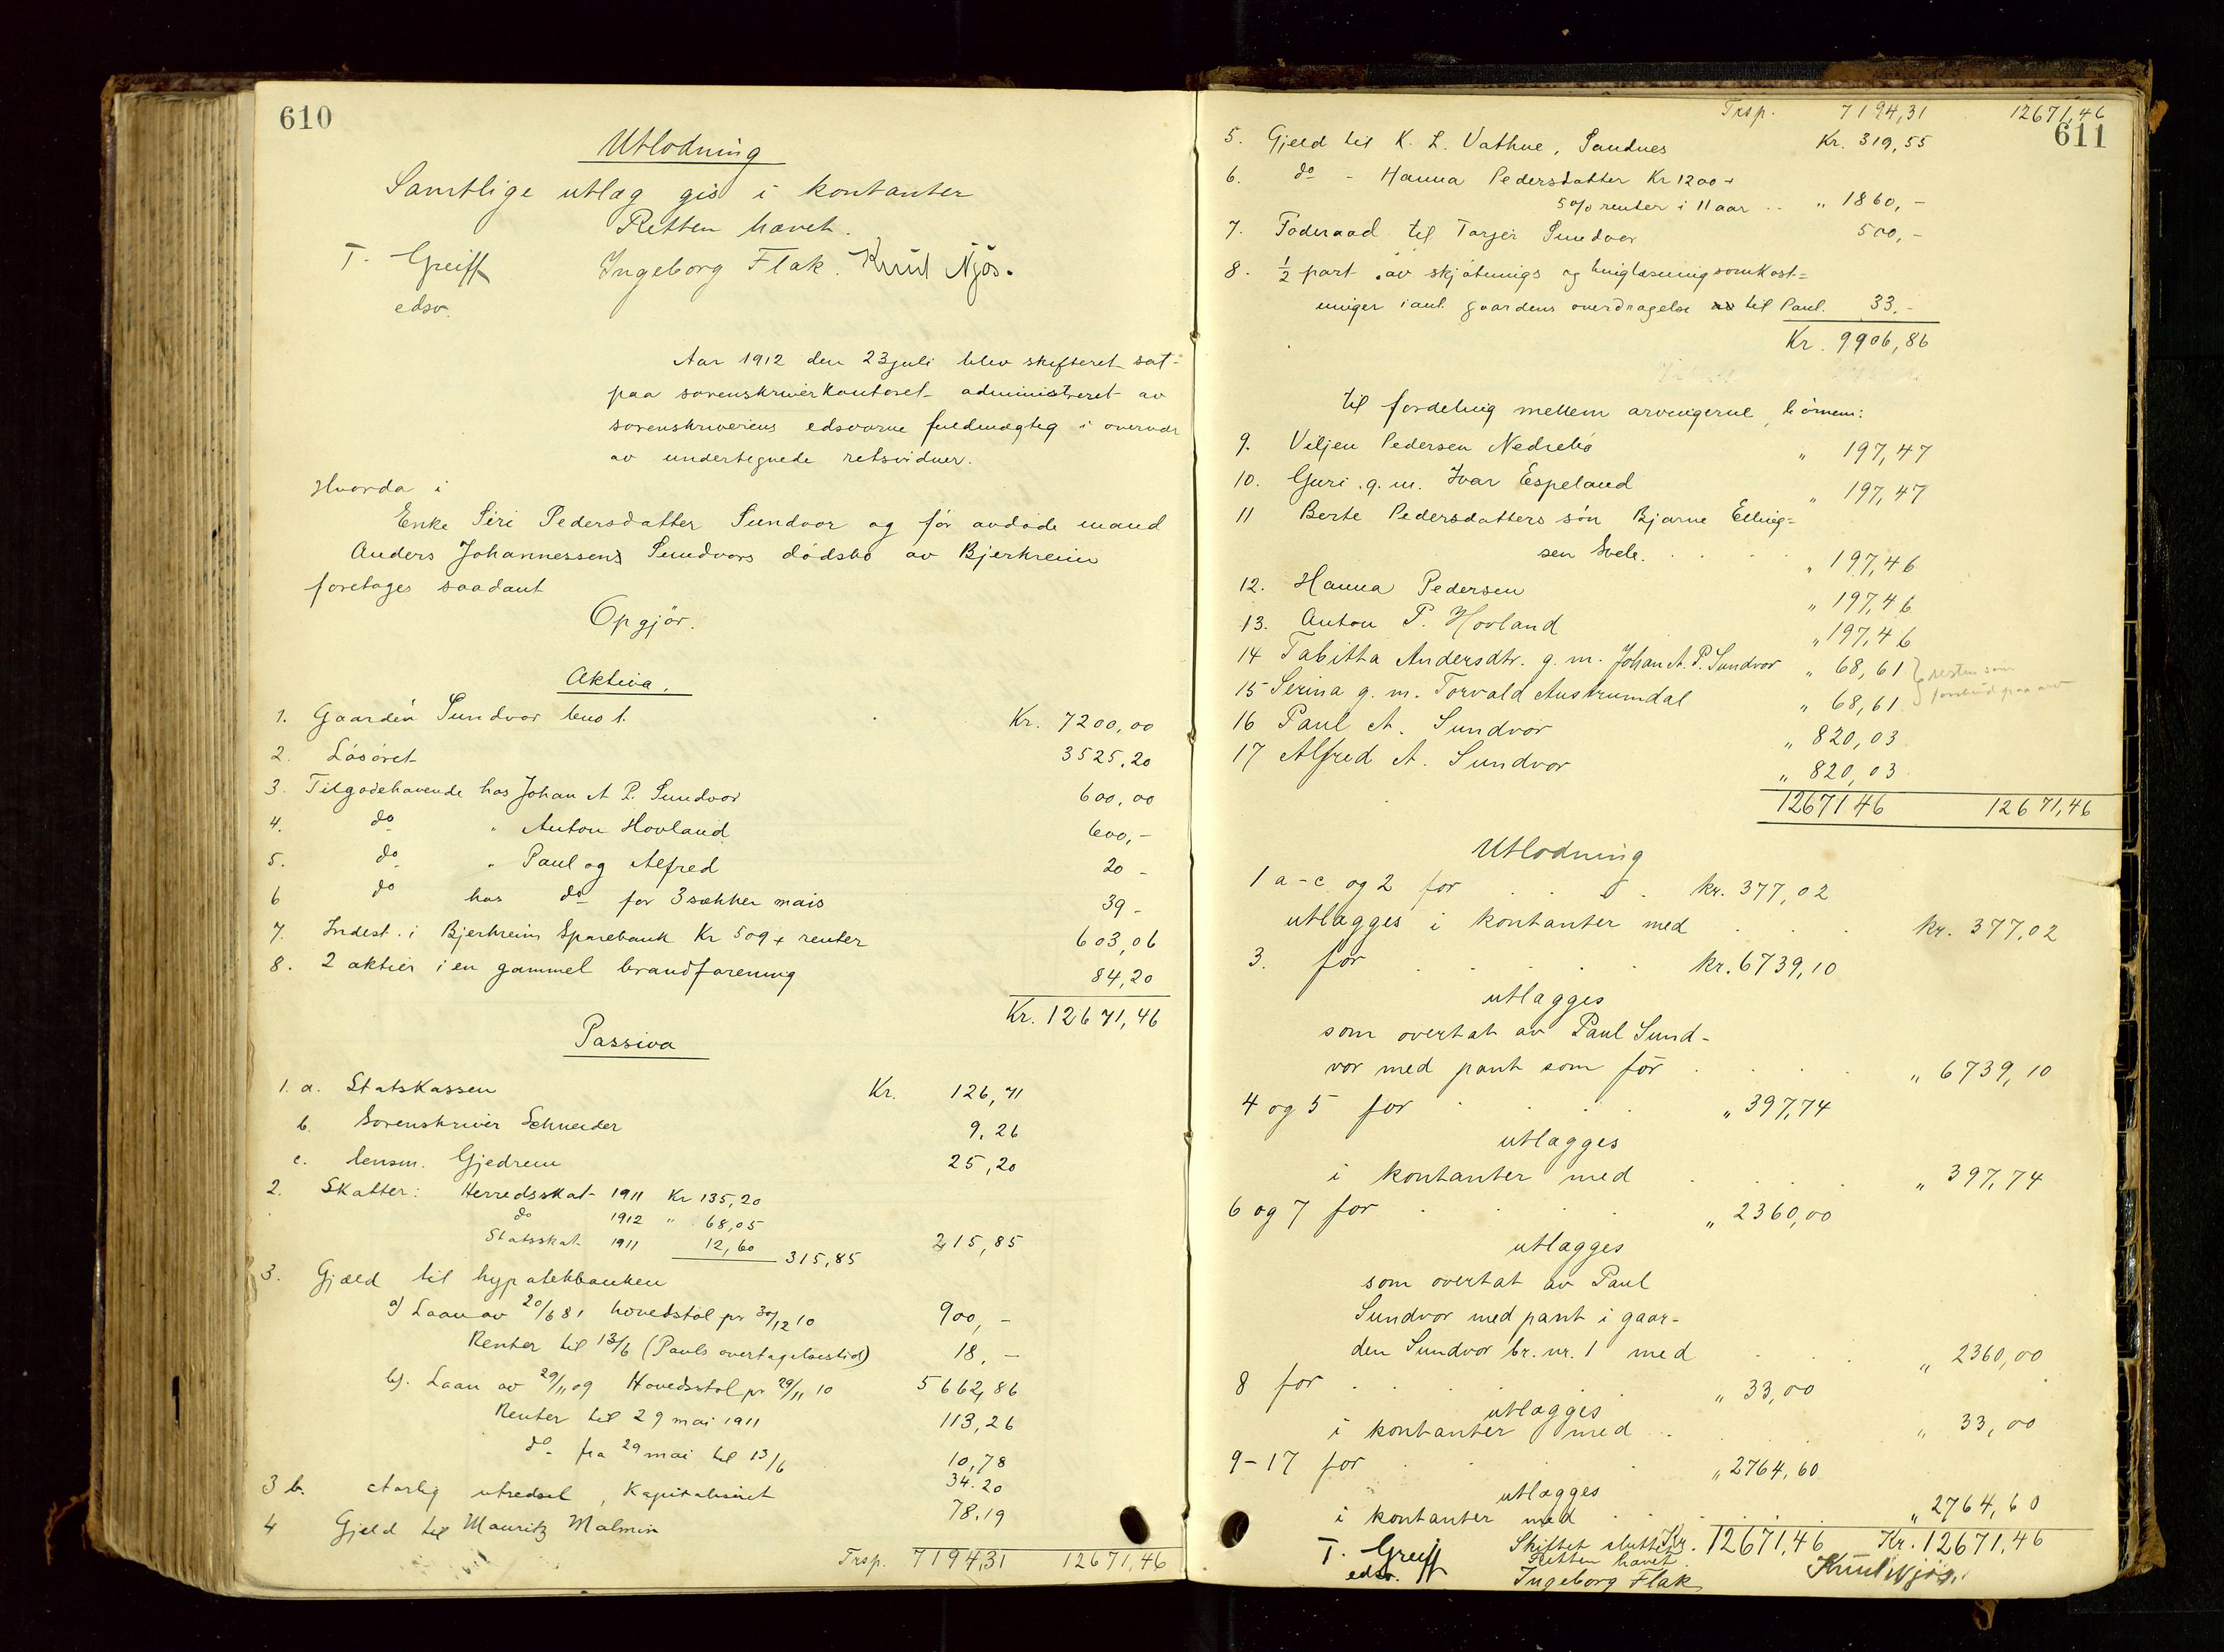 610
Utlodning
Samtlige utlæg gis i kontanter
Retten hævet.
T. Greiff Ingeborg Flak. Knut Njøs.
edsv.
Aar 1912 den 23 juli blev skifteret sat
paa sorenskriverkontoret administreret av
sorenskriverens edsvorne fuldmægtig i overvær
av undertegnede retsvidner.
Hvorda i
Enke Siri Pedersdatter Sundvor og før avdøde mand
Anders Johannessens Sundvors dødsbo av Bjerkreim
foretages saadant
Opgjør.
Aktiva.
1. Gaarden Sundvor bno 1. Kr. 7200,00
2. Løsøret 3525,20
3. Tilgodehavende hos Johan A P. Sundvor 600,00
4. do " Anton Hovland 600,-
5. do " Paul og Alfred 20 -
6 do hos do for 3 sækker mais 39 -
7. Indest. i Bjerkreim Sparebank Kr 509 + renter 603,06
8. 2 aktier i en gammel brandforening 84,20
Kr. 12671,46
Passiva
1. a. Statskassen Kr. 126,71
b. Sorenskriver Schneider 9,26
c. lensm. Gjedrem 25,20
2. Skatter: Herredsskat 1911 Kr 135,20
do 1912 " 68,05
Statsskat 1911 12,60 315,85 215,85
3. Gjæld til hypotekbanken
a) Laan av 20/6 81 hovedstol pr 30/12 10 900,-
Renter til 13/6 (Pauls overtagelsestid) 18,-
b). Laan av 29/11 09 Hovedstol pr 29/11 10 5662,86
Renter til 29 mai 1911 113,26
do fra 29 mai til 13/6 10,78
3 b. Aarlig utredsel, Kapitaliseret 34.20
4 Gjeld til Mauritz Malmin 78,19
Trsp. 7194,31 12671,46
Trsp. 7194,31 12671,46
611
5. Gjeld til K. L. Vathne, Sandnes Kr. 319,55
6. do - Hanna Pedersdatter Kr 1200 +
5% renter i 11 aar .. " 1860,-
7. Føderaad til Tarjer Sundvor 500,-
8. 1/2 part av skjøtnings og tinglæsningsomkost=
ninger i anl. gaardens overdragelse til Paul. 33.-
Kr. 9906,86
til fordeling mellem arvingerne, børnene:
9. Viljen Pedersen Nedrebø " 197,47
10. Guri. g. m. Ivar Espeland " 197,47
11 Berte Pedersdatters søn Bjarne Elling=
sen Svele. " 197,46
12. Hanna Pedersen " 197,46
13. Anton P. Hovland " 197,46
14 Tabitta Andersdtr. g. m. Johan A. P. Sundvor " 68,61 } resten som
15 Serina g. m. Torvald Austrumdal " 68,61 } forskud paa arv
16 Paul A. Sundvor " 820,03
17 Alfred A. Sundvor " 820,03
12671 46 12671,46
Utlodning
1 a-c og 2 for kr. 377,02
utlægges i kontanter med kr. 377,02
3. for kr. 6739,10
utlægges
som overtat av Paul Sund-
vor med pant som før " 6739,10
4 og 5 for " 397,74
utlægges
i kontanter med " 397,74
6 og 7 for " 2360,00
utlægges
som overtat av Paul
Sundvor med pant i gaar-
den Sundvor br. nr. 1 med " 2360,00
8 for " 33,00
utlægges
i kontanter med " 33,00
9-17 for " 2764,60
utlægges
i kontanter med " 2764,60
Skiftet sluttet Kr. 12671,46 Kr. 12671,46
Retten hævet
T. Greiff Ingeborg Flak Knut Njøs.
edsv.